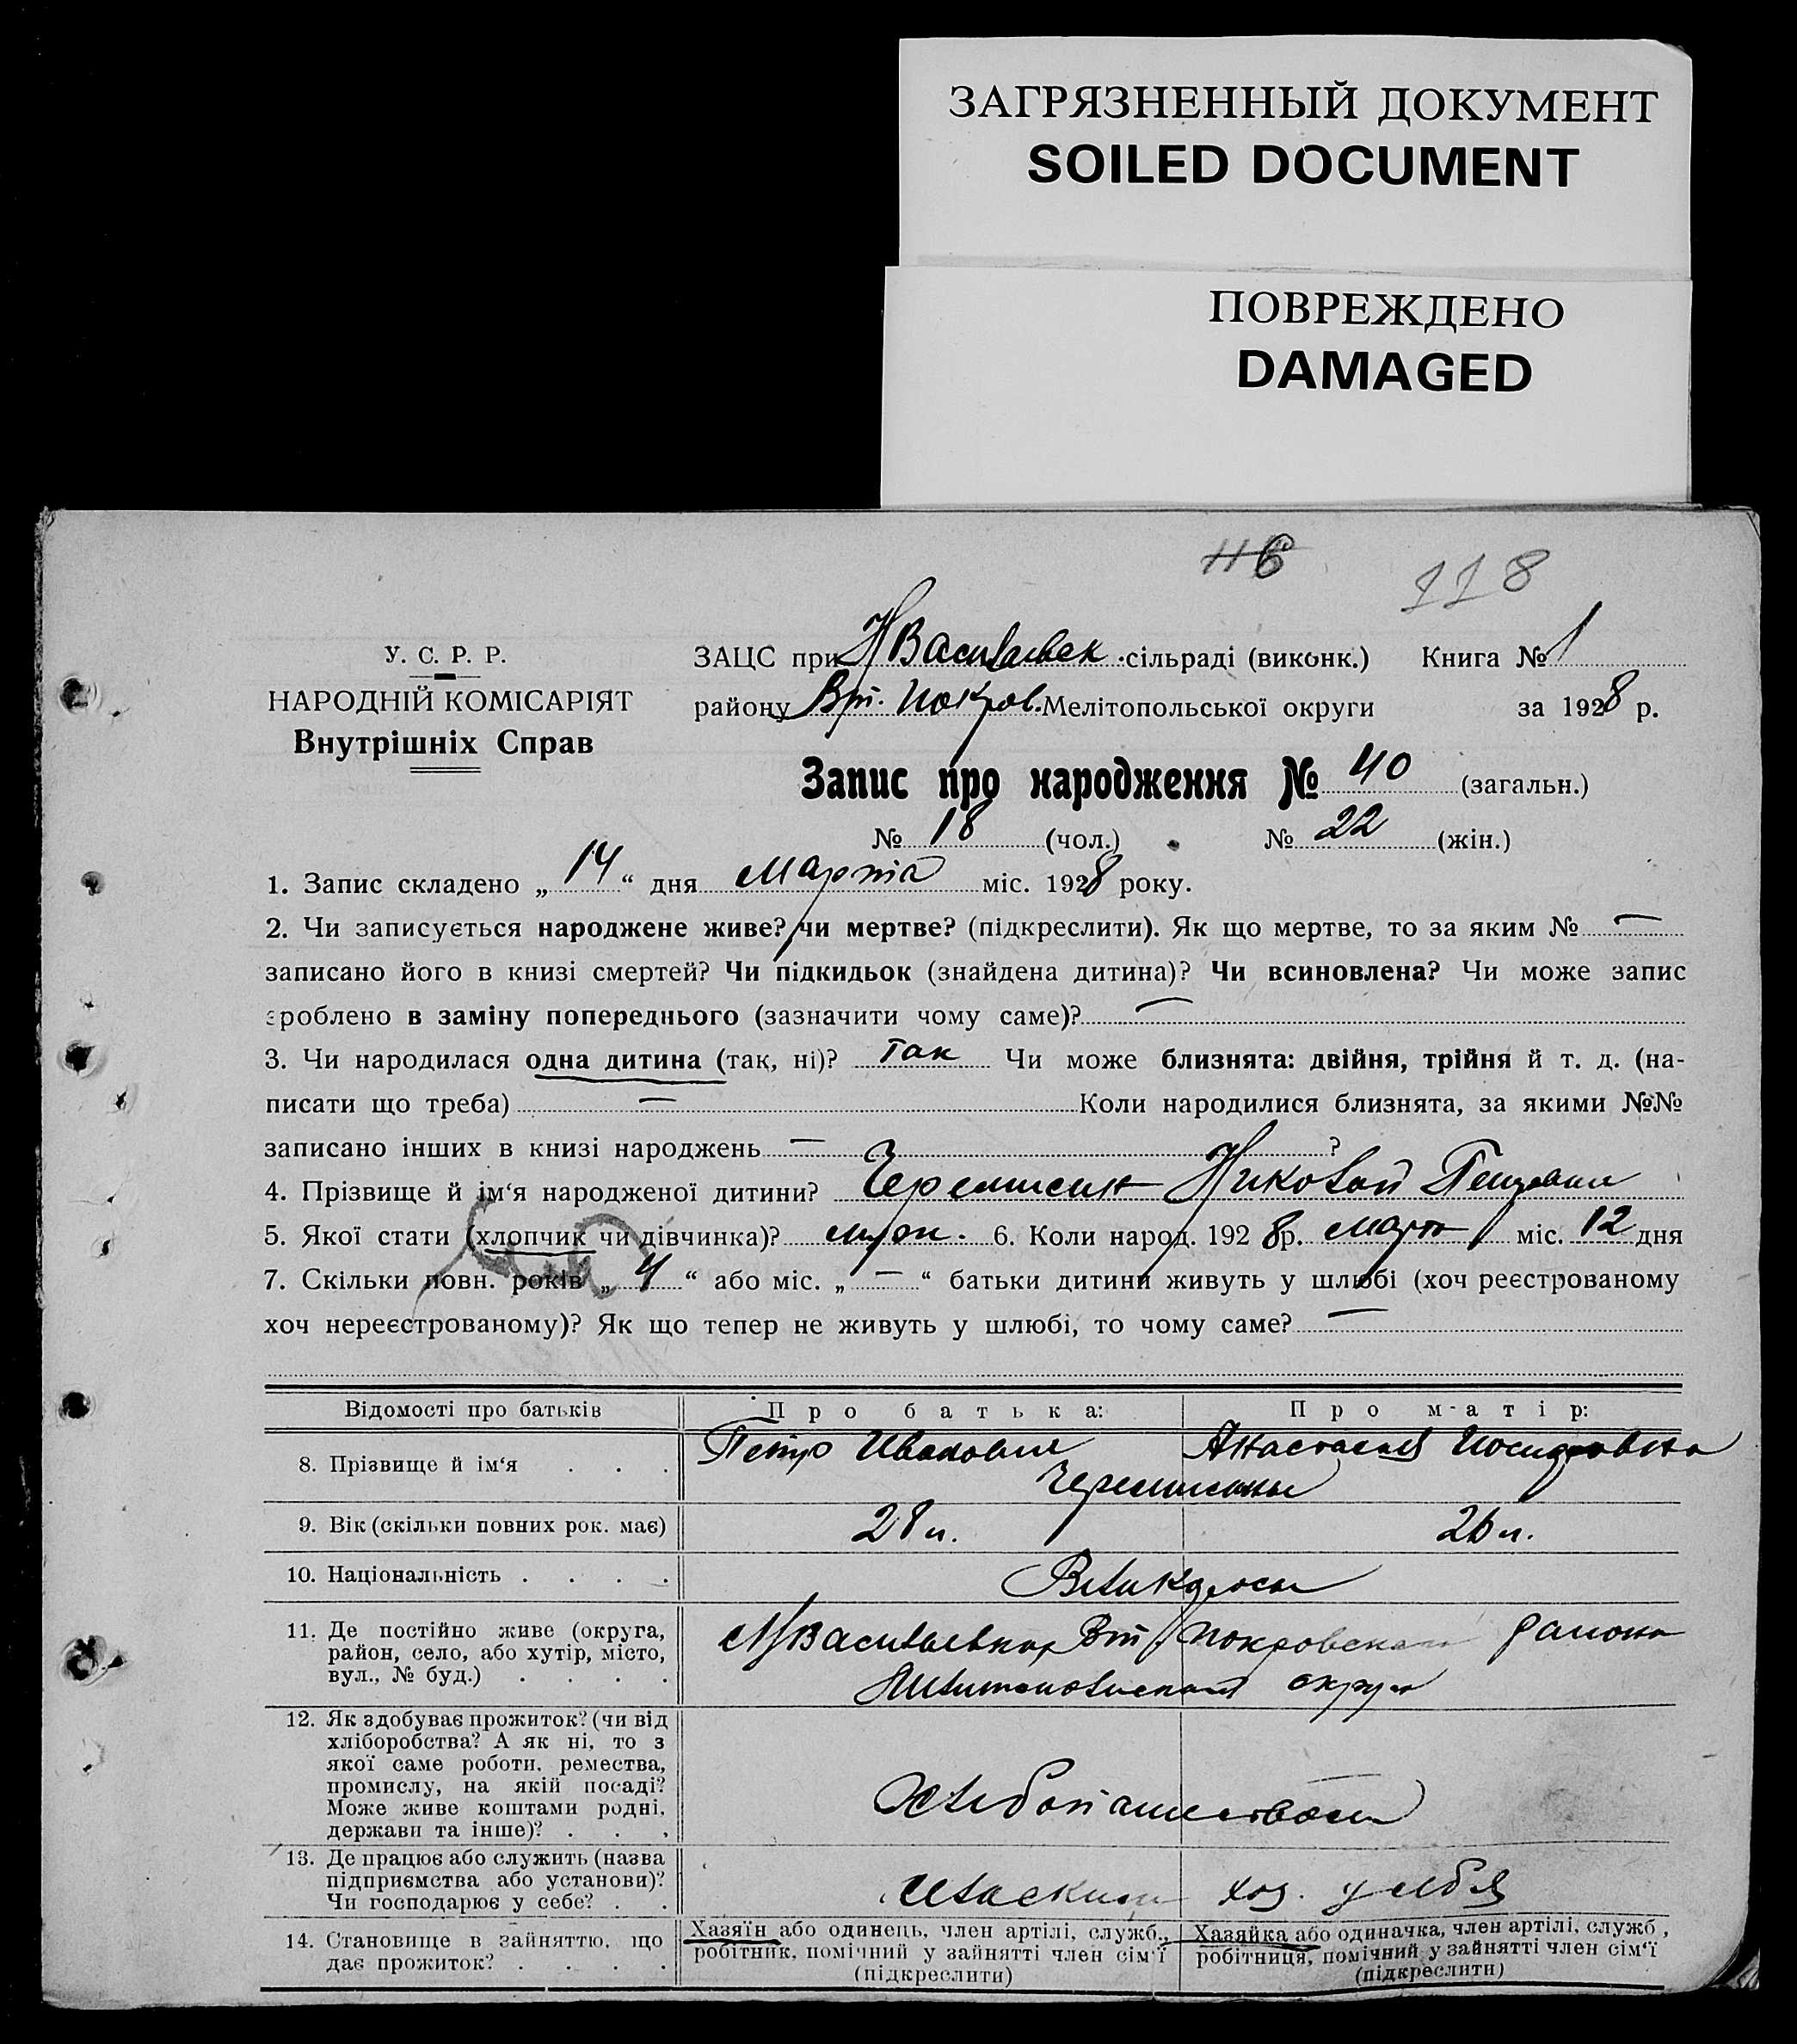 ЗАГРЯЗНЕННЫЙ ДОКУМЕНТ
SOILED DOCUMENT
ПОВРЕЖДЕНО
DAMAGED
116
118
У. С. Р. Р.
НАРОДНІЙ КОМІСАРІЯТ
Внутрішніх Справ
ЗАЦС при Н Васильевск. сільраді (виконк.) Книга № 1
району Вт. Покров. Мелітопольської округи за 1928 р.
Запис про народження № 40 (загальн.)
№ 18 (чол.) № 22 (жін.)
1. Запис складено „ 14 “ дня Марта міс. 1928 року.
2. Чи записується народжене живе? чи мертве? (підкреслити). Як що мертве, то за яким № —
записано його в книзі смертей? Чи підкидьок (знайдена дитина)? Чи всиновлена? Чи може запис
зроблено в заміну попереднього (зазначити чому саме)? —
3. Чи народилася одна дитина (так, ні)? так Чи може близнята: двійня, трійня й т. д. (на-
писати що треба) — Коли народилися близнята, за якими №№
записано інших в книзі народжень — ?
4. Прізвище й ім‘я народженої дитини? Черемисин Николай Петрович
5. Якої стати (хлопчик чи дівчинка)? муж. 6. Коли народ. 1928 р. марта міс. 12 дня
7. Скільки повн. років „ 4 “ або міс. „ — “ батьки дитини живуть у шлюбі (хоч реєстрованому
хоч нереєстрованому)? Як що тепер не живуть у шлюбі, то чому саме? —
Відомості про батьків Про батька: Про матір:
8. Прізвище й ім‘я . . . Петр Иванович Анастасия
Черемисины
9. Вік (скільки повних рок. має) 28 л. 26 л.
10. Національність . . . . Великороссы
11. Де постійно живе (округа, район, село, або хутір, місто, вул., № буд.) . . . .
Н Васильевка Вт. Покровского района
Мелитопольской округи
12. Як здобуває прожиток? (чи від
хліборобства? А як ні, то з
якої саме роботи, ремества,
промислу, на якій посаді?
Може живе коштами родні,
держави та інше)? . . .
Хлебопашеством
13. Де працює або служить (назва
підприємства або установи)?
Чи господарює у себе? . .
хоз. у себя
14. Становище в зайняттю, що
дає прожиток? . . . .
Хазяїн або одинець, член артілі, служб.,
робітник, помічний у зайнятті член сім‘ї
(підкреслити)
Хазяйка або одиначка, член артілі, служб.,
робітниця, помічний у зайнятті член сім‘ї
(підкреслити)